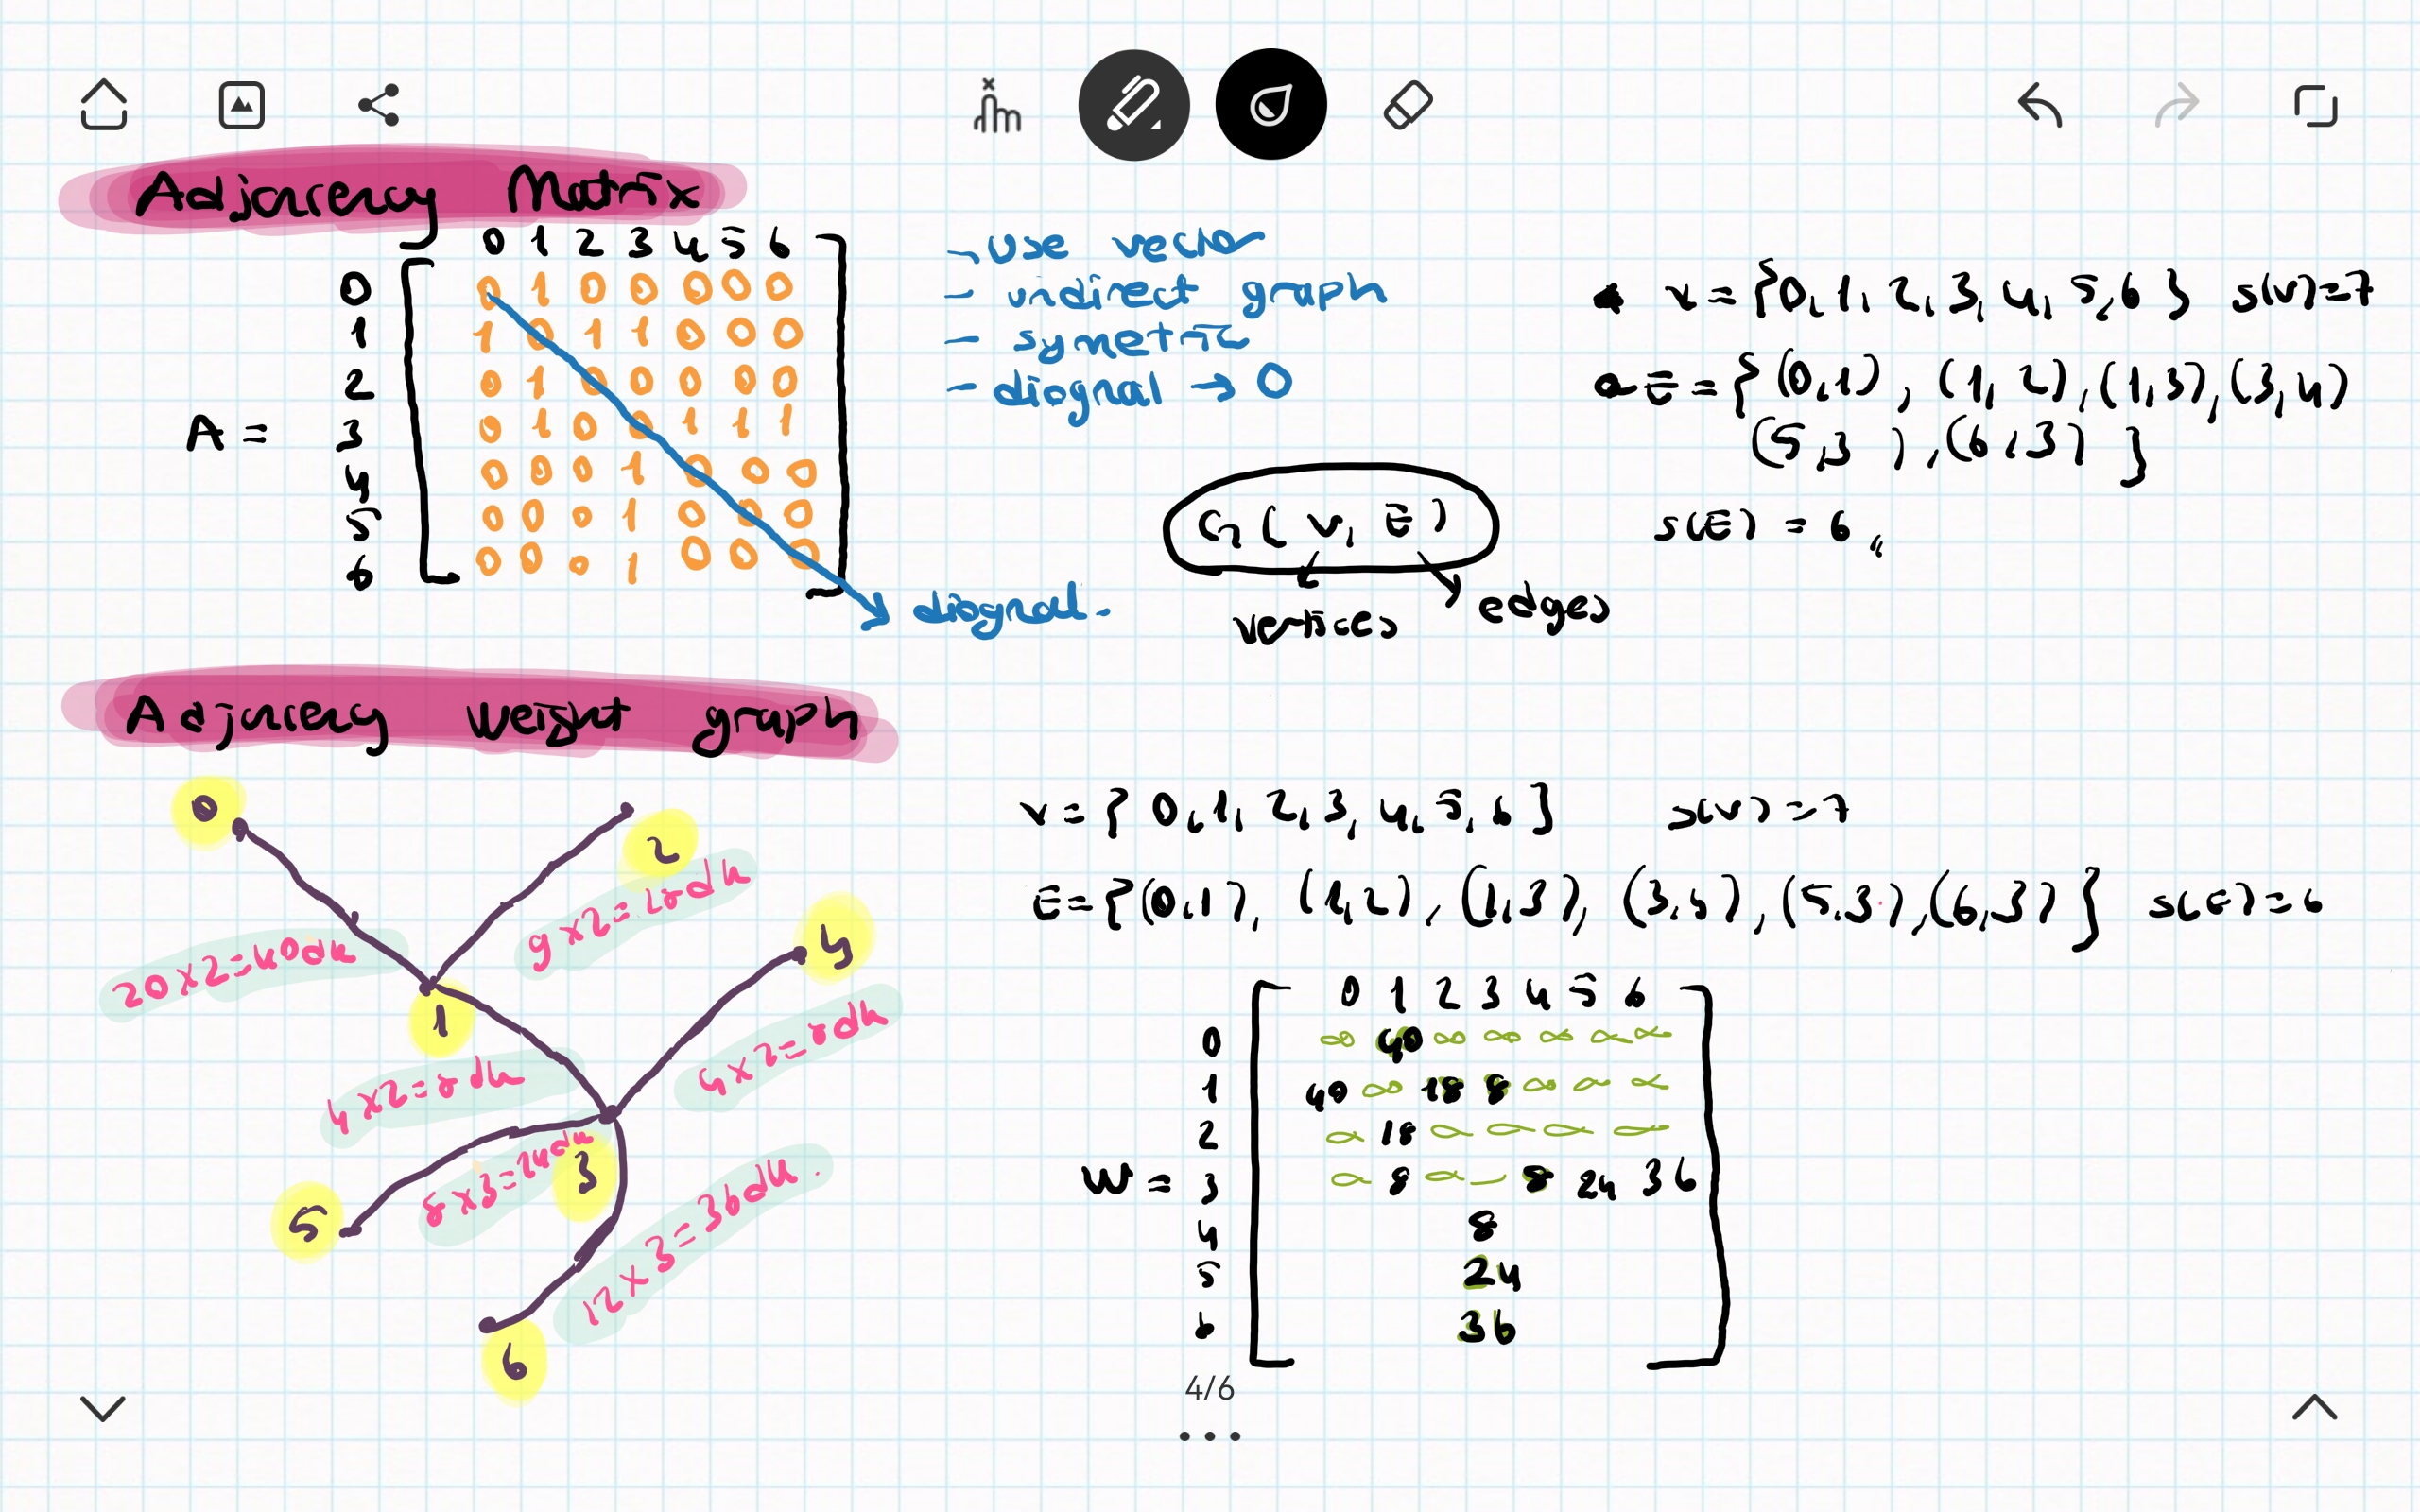 Adjacency Matrix
0 1 2 3 4 5 6
0 0 1 0 0 0 0 0
1 1 0 1 1 0 0 0
2 0 1 0 0 0 0 0
A = 3 0 1 0 0 1 1 1
4 0 0 0 1 0 0 0
5 0 0 0 1 0 0 0
6 0 0 0 1 0 0 0
diognal.
→ use vector
- undirect graph
- symetric
- diognal → 0
G ( V, E )
vertices
edges
V = {0, 1, 2, 3, 4, 5, 6 } s(V)=7
E = { (0,1) , (1, 2), (1,3), (3,4)
(5,3 ) , (6,3) }
s(E) = 6
Adjacency weight graph
0
2
9x2=18dk
4
20x2=40dk
1
4x2=8dk
4x2=8dk
8x3=24dk
3
5
12x3=36dk.
6
V = { 0, 1, 2, 3, 4, 5, 6 } s(V)=7
E = {(0,1), (1,2), (1,3), (3,4), (5,3), (6,3) } s(E)=6
0 1 2 3 4 5 6
0 ∞ 40 ∞ ∞ ∞ ∞ ∞
1 40 ∞ 18 8 ∞ ∞ ∞
2 ∞ 18 ∞ ∞ ∞ ∞
W = 3 ∞ 8 ∞ 8 24 36
4 8
5 24
6 36
4/6